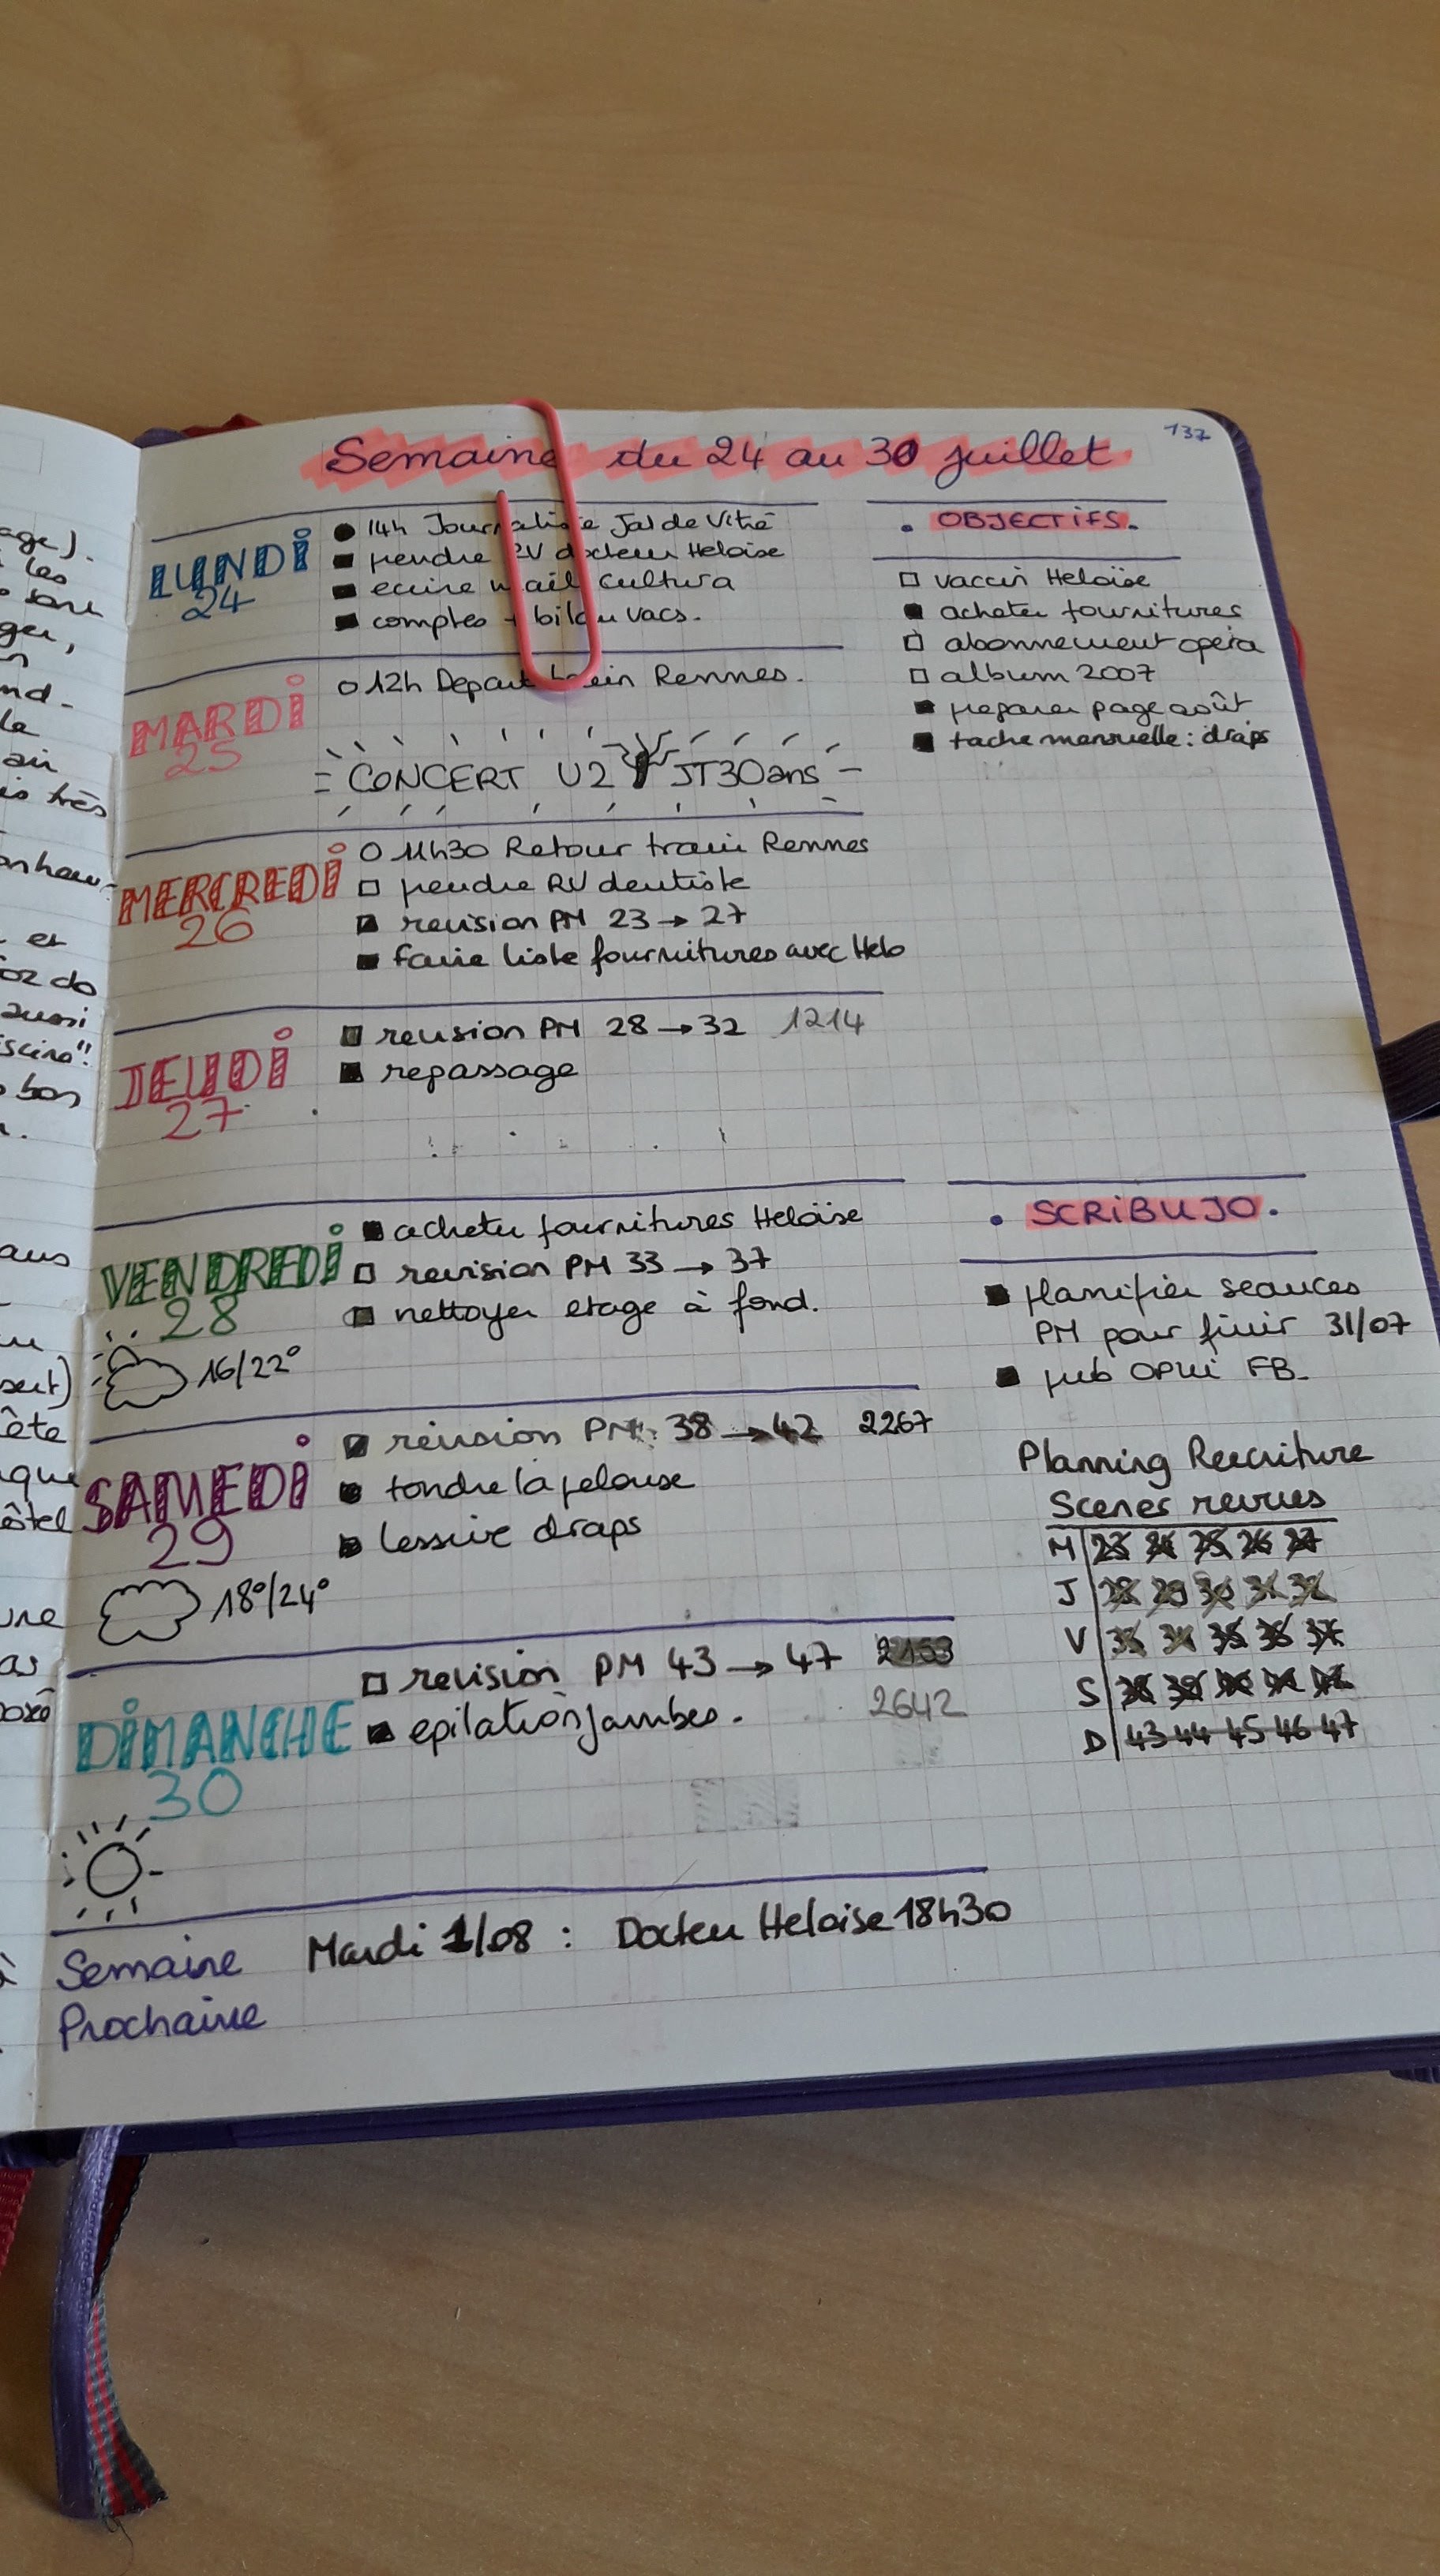 137
Semaine du 24 au 30 juillet
LUNDI
24
14h Journaliste Jal de Vitré
prendre RV docteur Heloïse
ecrire mail Cultura
comptes + bilan vacs.
MARDI
25
12h Depart train Rennes.
CONCERT U2 JT30ans
MERCREDI
26
11h30 Retour train Rennes
prendre RV dentiste
revision PM 23 → 27
faire liste fournitures avec Helo
JEUDI
27
revision PM 28 → 32 1214
repassage
VENDREDI
28
16/22°
acheter fournitures Heloïse
revision PM 33 → 37
nettoyer etage à fond.
SAMEDI
29
18°/24°
revision PM 38 → 42 2267
tondre la pelouse
lessive draps
DIMANCHE
30
revision PM 43 → 47 2153
2642
epilation jambes.
Semaine
Prochaine
Mardi 1/08 : Docteur Heloise 18h30
. OBJECTIFS.
vaccin Heloïse
acheter fournitures
abonnement opéra
album 2007
preparer page août
tache mensuelle : draps
. SCRIBUJO.
planifier seances
PM pour finir 31/07
pub OPLui FB
Planning Reecriture
Scenes revues
M 23 24 25 26 27
J 28 29 30 31 32
V 33 34 35 36 37
S 38 39 40 41 42
D 43 44 45 46 47
age).
les
sont
ger,
nd-
la
air
is très
et
oz do
aussi
bon
ans
sert)
ête
que
ôtel
une
as
posé
à